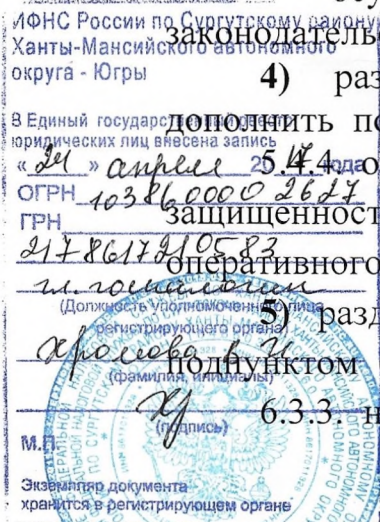 ИФНС России по Сургутскому району
Ханты-Мансийского автономного
округа - Югры
В Единый государственный реестр
юридических лиц внесена запись
«24» апреля 2017 года
ОГРН 1038600002627
ГРН
2178617210583
(Должность уполномоченного лица
регистрирующего органа)
Хромова
(фамилия, инициалы)
(подпись)
М.П.
Экземпляр документа
хранится в регистрирующем органе
законодатель
4) раз
дополнить по
5.4.4. о
защищенност
оперативного
5) разд
подпунктом
6.3.3. н